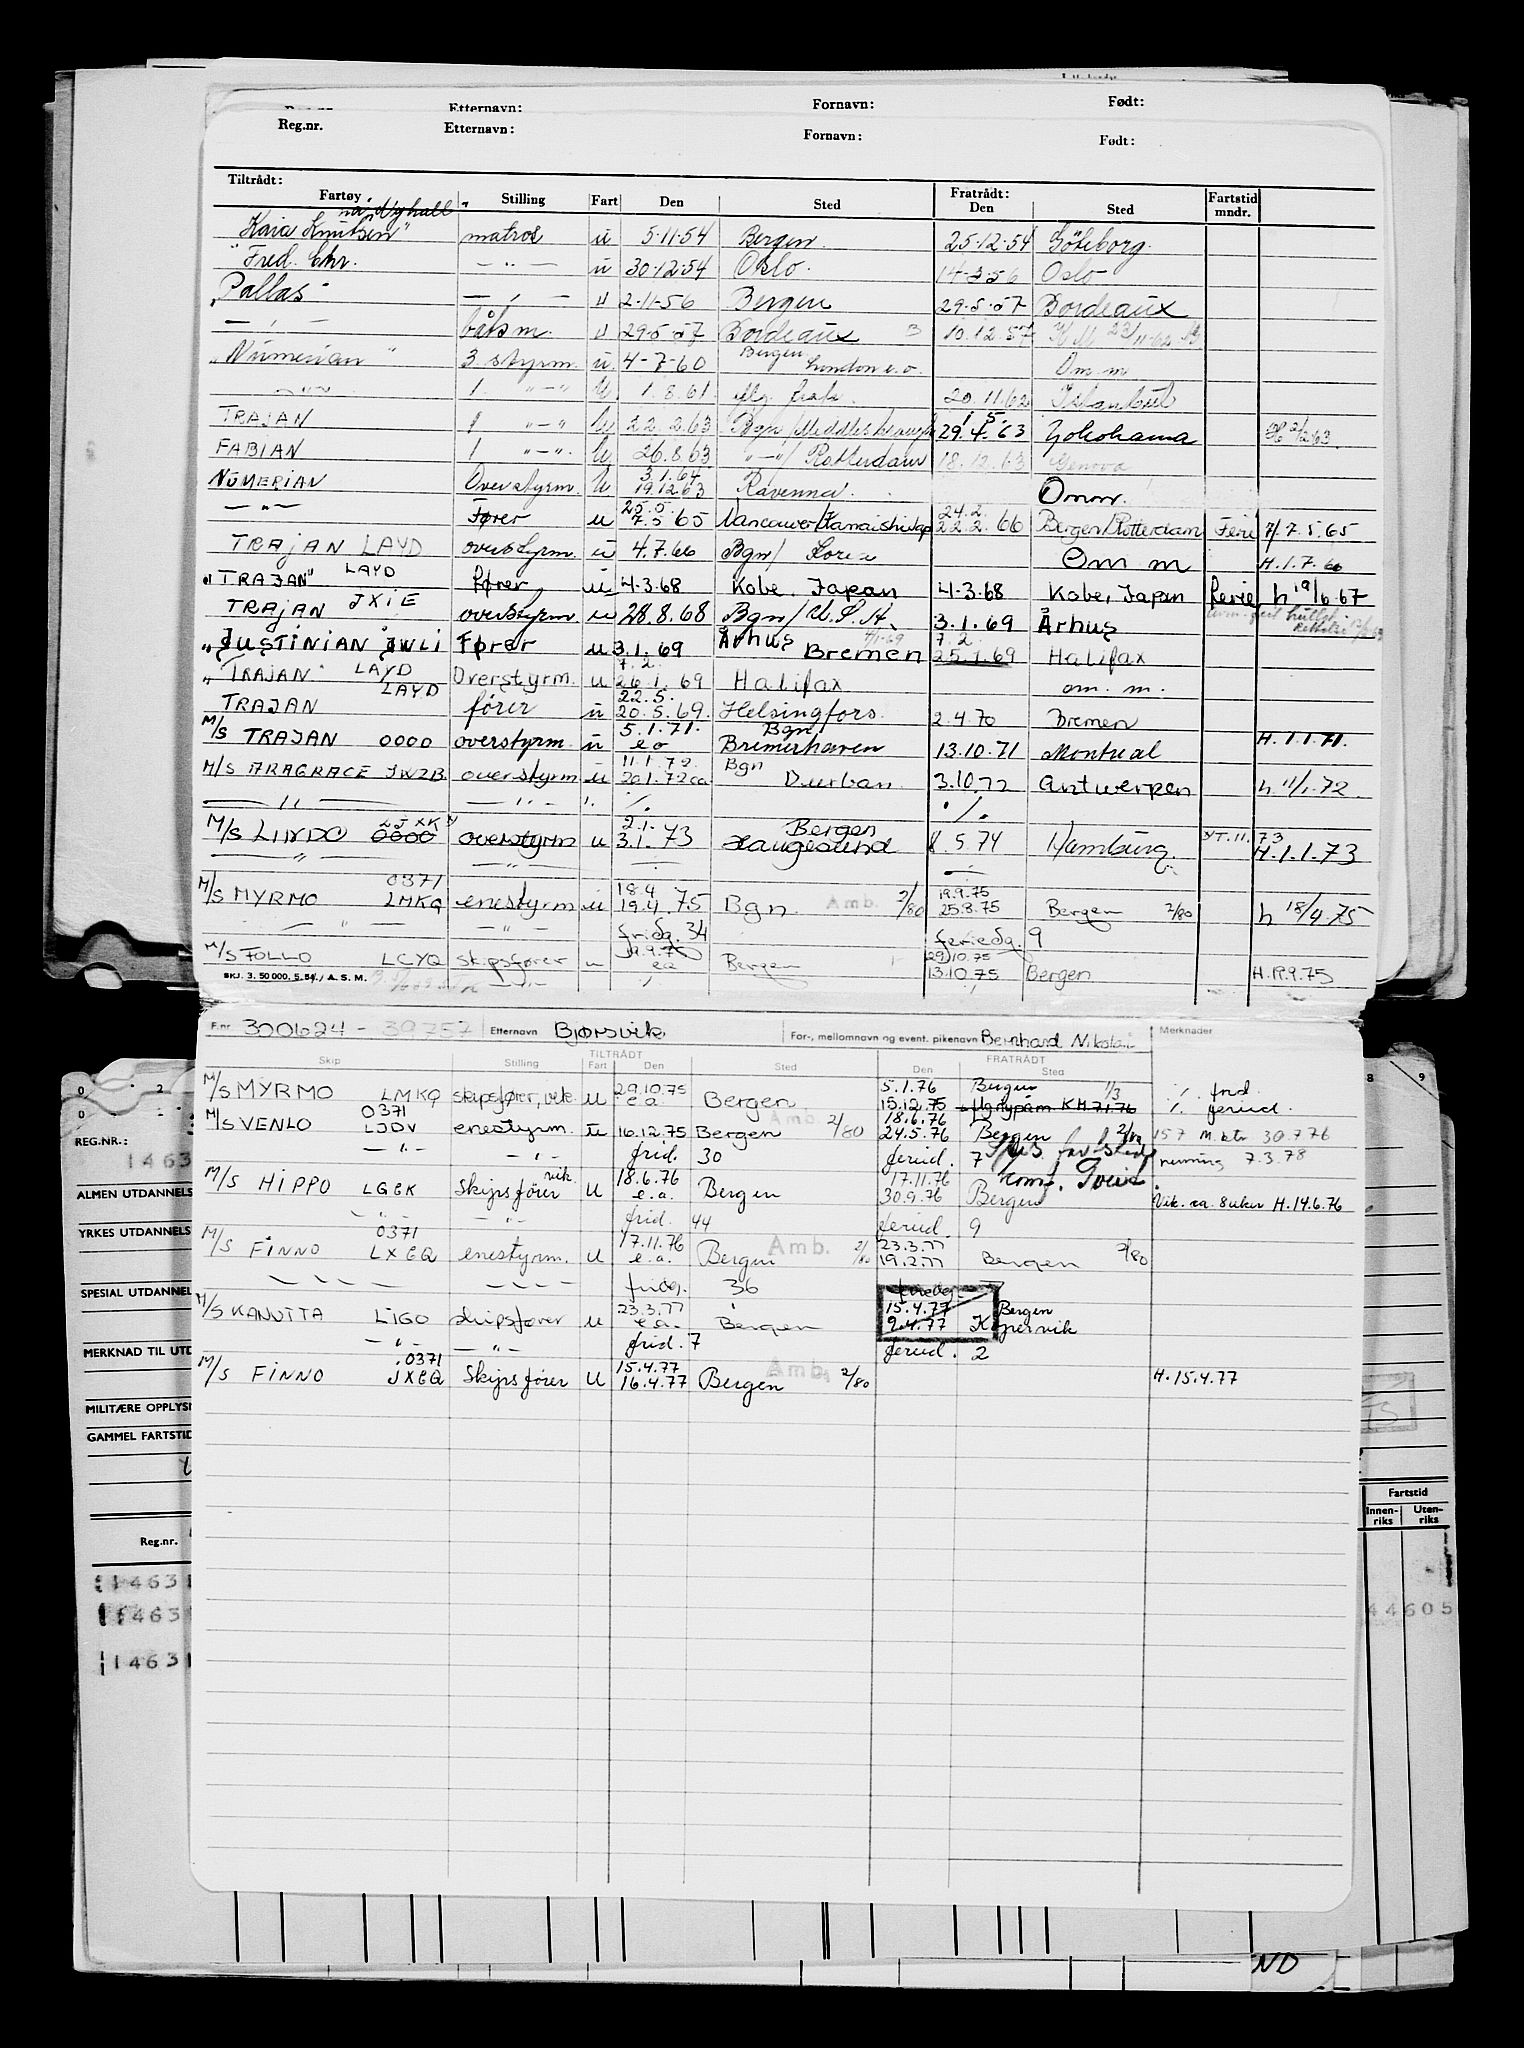 Etternavn: Fornavn: Født:
Reg.nr. Etternavn: Fornavn: Født:
Tiltrådt: Fratrådt: Fartstid
Fartøy Stilling Fart Den Sted Den Sted mndr.
Kaia Knutsen" matros u 5.11.54 Bergen. 25.12.54 Göteborg.
"Fred. Chr. — " — u 30.12.54 Oslo. 14.3.56 Oslo
"Pallas" — " — u 2.11.56 Bergen 29.5.57 Bordeaux
— " — båtsm. u 29.5.57 Bordeaux 10.12.57
"Numerian" 3. styrm. u. 4-7-60 Bergen London e.o. Om. m
— " — 1. "—" u 1.8.61 20.11.62 Istanbul
TRAJAN 1 "—" u 22.2.63 Bgn/ 29.4.63 Yokohama
FABIAN 1 "—" u 26.8.63 "—"/ Rotterdam 18.12.63 Genova
NUMERIAN Overstyrm. u 3.1.64 19.12.63 Ravenna. Omm.
— " — Fører u 25.5. 7.5 65 Vancouver/ 24.2. 22.2. 66 Bergen/Rotterdam Ferie H. 7.5.65
TRAJAN LAYD overstyrm. u 4.7.66 Bgn/ Korea Om m H.1.7.66
"TRAJAN" LAYD fører u 4.3.68 Kobe, Japan 4.3.68 Kobe, Japan ferie h 19/6.67
TRAJAN JXIE overstyrm u 28.8.68 Bgn/U.S.A. 3.1.69 Århus
"JUSTINIAN JWLI Fører u 3.1.69 Århus Bremen 7.2. 25.1.69 Halifax
"TRAJAN" LAYD Overstyrm. u 7.2. 26.1.69 Halifax om. m.
TRAJAN LAYD fører u 22.5. 20.5.69. Helsingfors. 2.4.70 Bremen
M/S TRAJAN 0000 overstyrm. u 5.1.71. ea Bgn Bremerhaven 13.10.71 Montreal H.1.1.71.
M/S ARAGRACE JWZB overstyrm u 11.1.72. 20.1.72 ca Bgn Durban. 3.10.72 Antwerpen h 11/1.72.
— " — — " — ". ./. ./.
M/S LINDO LJXK 0000 overstyrm u 2.1. 3.1.73 Bergen Haugesund 8.5.74 Hamburg. H.1.1.73
— " — — " —
M/S MYRMO 0371 LMKQ enestyrm u 18.4 19.4.75 Bgn. Amb. 2/80 19.9.75 25.8.75 Bergen 2/80 h 18/4.75
— " — — " — fridg. 34 feriedg. 9
M/S FOLLO LCYQ skipsfører u 19.9.75 ea Bergen 29.10.75 13.10.75 Bergen H.19.9.75
SKJ. 3. 50 000. 5.54. A.S.M.
F.nr 300624 - 39757 Etternavn Bjørsvik For-, mellomnavn og event. pikenavn Bernhard Nikolai Merknader
TILTRÅDT FRATRÅDT
Skip Stilling Fart Den Sted Den Sted
M/S MYRMO LMKQ skipsfører, vik. u 29.10.75 e.a. Bergen 5.1.76 15.12.75 Bergen 1/3 ./. frid ./. feried.
M/S VENLO 0371 LJDV enestyrm. u 16.12.75 Bergen Amb. 2/80 18.6.76 24.5.76 Bergen 2/80
— " — — " — frid. 30 feried. 7
M/S HIPPO LGEK Skipsfører vik. u 18.6.76 e.a. Bergen 17.11.76 30.9.76 Bergen Vik. ca. 8 uker H.14.6.76
— " — — " — frid. 44 feried. 9
M/S FINNO 0371 LXEQ enestyrm. u 17.11.76 e.a. Bergen Amb. 2/80 23.3.77 19.2.77 Bergen 2/80
fridg. 36 feriedg.
M/S KANUTTA LIGO skipsfører u 23.3.77 e.a. Bergen 15.4.77 9.4.77 Bergen Kopervik
— " — — " — frid. 7 feried. 2
M/S FINNO 0371 JXEQ Skipsfører u 15.4.77 16.4.77 Bergen Amb. 2/80 H.15.4.77
REG.NR.:
1463
ALMEN UTDANNELS
YRKES UTDANNELS
SPESIAL UTDANNEL
MERKNAD TIL UTD
MILITÆRE OPPLYSN
GAMMEL FARTSTID
Reg.nr.
1463
1463
1463
8 9
Fartstid
Innen-riks Uten-riks
44605
ND